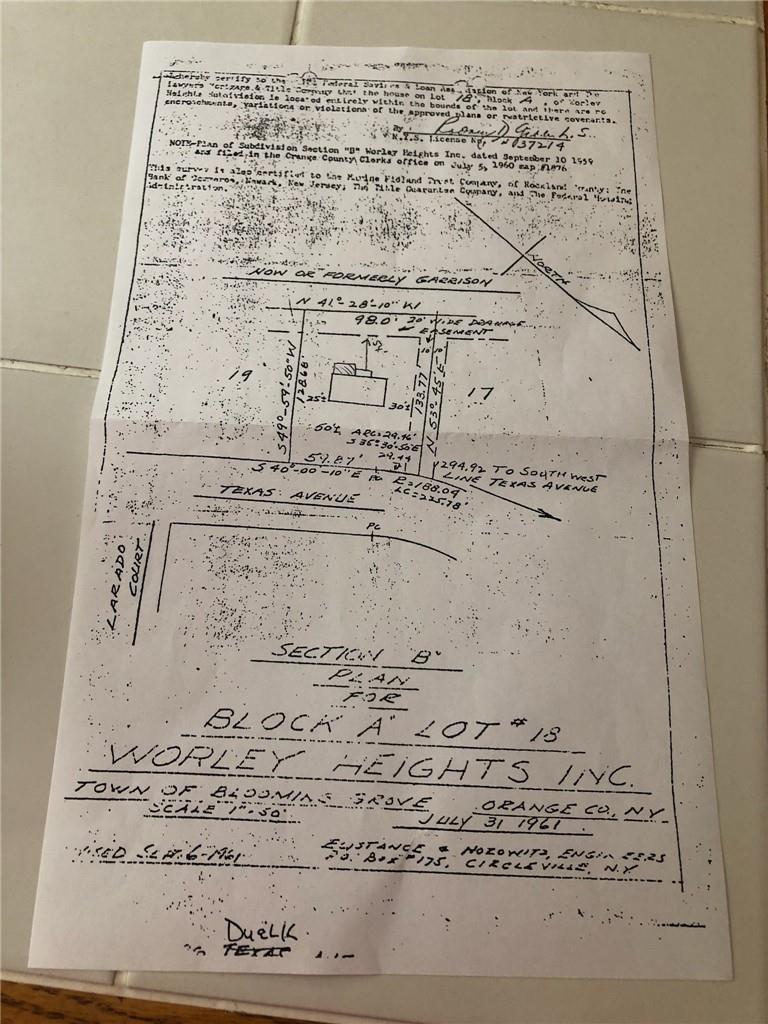 hereby certify to the Federal Savings & Loan Association of New York and The
Lawyers Mortgage & Title Company that the house on lot 18, block A, of Worley
Heights Subdivision is located entirely within the bounds of the lot and there are no
encroachments, variations or violations of the approved plans or restrictive covenants.
By
N.Y.S. License No. 37214
NOTE-Plan of Subdivision Section "B" Worley Heights Inc. dated September 10 1959
and filed in the Orange County Clerks office on July 5, 1960 map #1876
This survey is also certified to the Marine Midland Trust Company, of Rockland County: The
Bank of Commerce, Newark, New Jersey; The Title Guarantee Company, and The Federal Housing
Administration.
NORTH
NOW OR FORMERLY GARRISON
N 41°-28'-10" W
98.0' 20' WIDE DRAINAGE
EASEMENT
10' 10'
19
S 49°-59'-50" W
128.68'
25'±
30'±
133.77'
N 53°-45' E
17
60'±
ARC=29.46'
S 35°-30'-50" E
29.44
59.87'
S 40°-00'-10" E
PC
R=188.04
LC=225.78'
294.92 TO SOUTHWEST
LINE TEXAS AVENUE
TEXAS AVENUE
PC
LARADO
COURT
SECTION "B"
PLAN
FOR
BLOCK "A" LOT #18
WORLEY HEIGHTS INC.
TOWN OF BLOOMING GROVE ORANGE CO., N.Y.
SCALE 1"=50' JULY 31 1961
SEPT. 6-1961
EUSTANCE & HOROWITZ, ENGINEERS
P.O. BOX #175, CIRCLEVILLE, N.Y.
DuELK
TEXAS